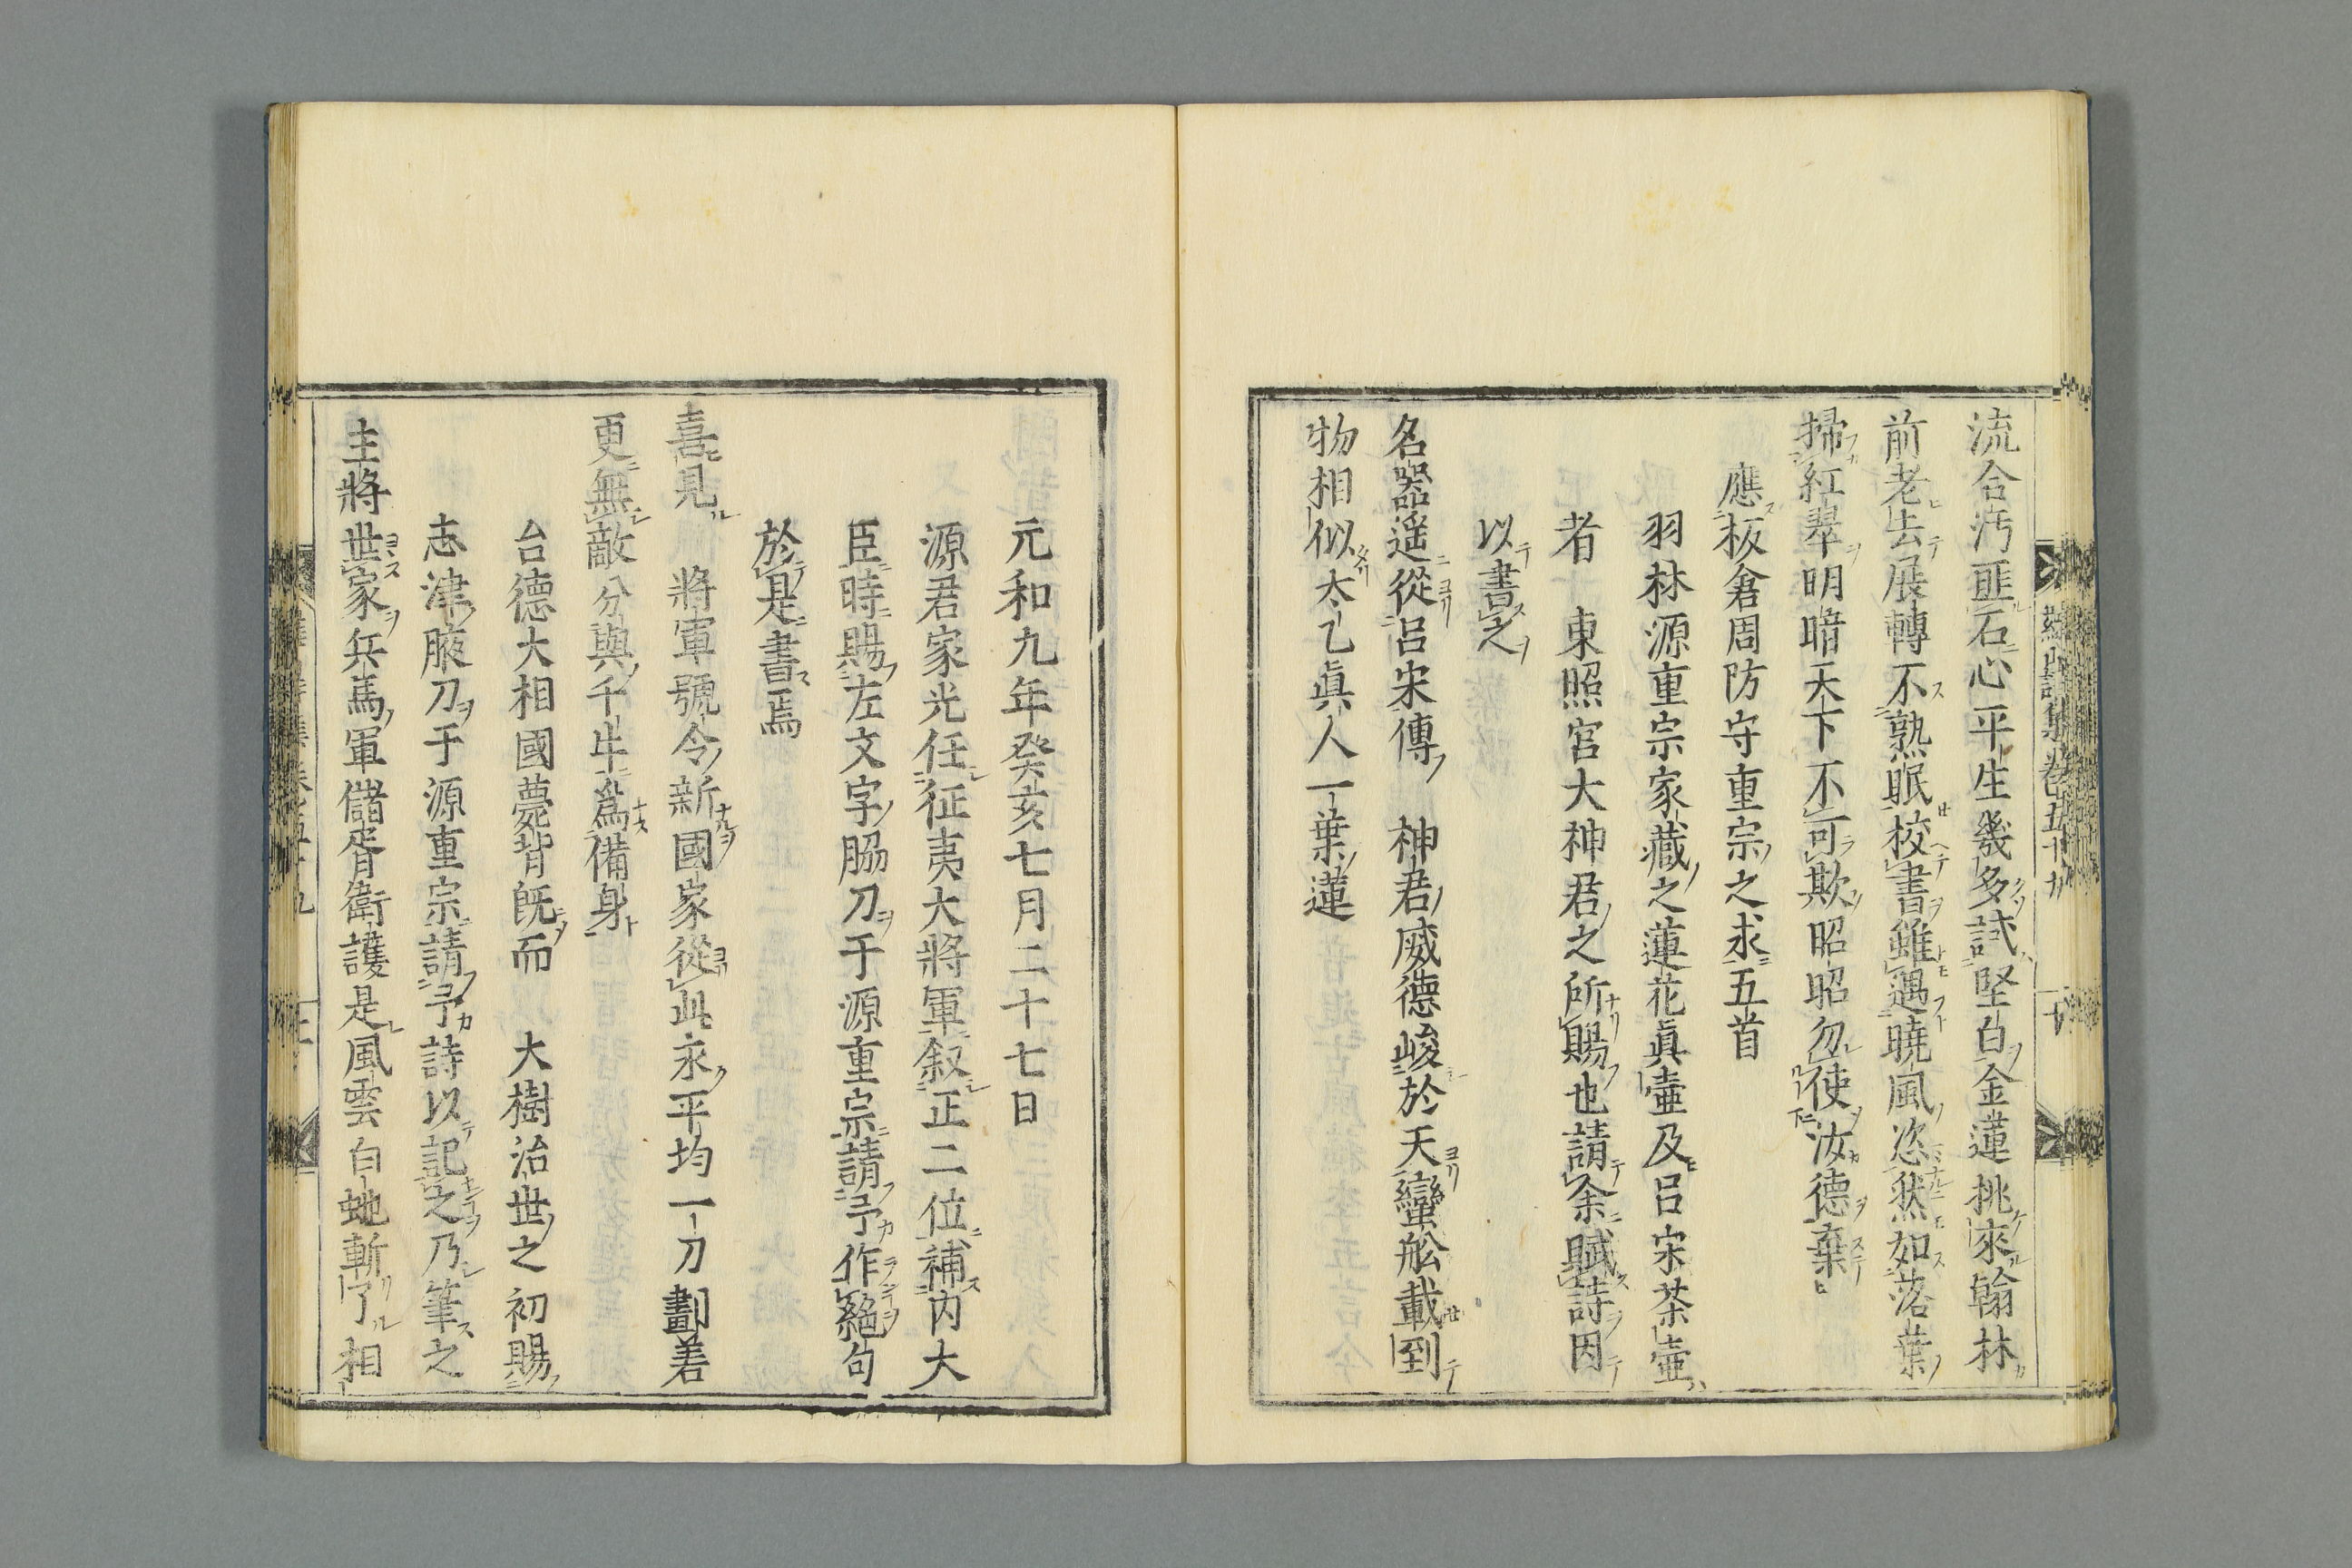 流合汚匪石心平生幾多試堅白金蓮挑來翰林
前老去展轉不熟眠校書雖遇曉風恣然如落葉
掃紅翠明暗天下不可欺昭昭勿使汝德棄
應板倉周防守重宗之求五首
羽林源重宗家藏之蓮花眞壷及呂宋茶壷
者　東照宮大神君之所賜也請余賦詩因
以書之
名器遥從呂宋傳　神君威德峻於天蠻舩載到
物相似太乙眞人一葉蓮
元和九年癸亥七月二十七日
源君家光任征夷大將軍叙正二位補内大
臣時賜左文字脇刀于源重宗請予作絕句
於是書焉
喜見　將軍號令新國家從此永平均一刀劃着
更無敵分與千牛爲備身
台德大相國薨背既而　大樹治世之初賜
志津腋刀于源重宗請予詩以記之乃筆之
主將世家兵馬軍儲胥衛護是風雲白虵斬了相